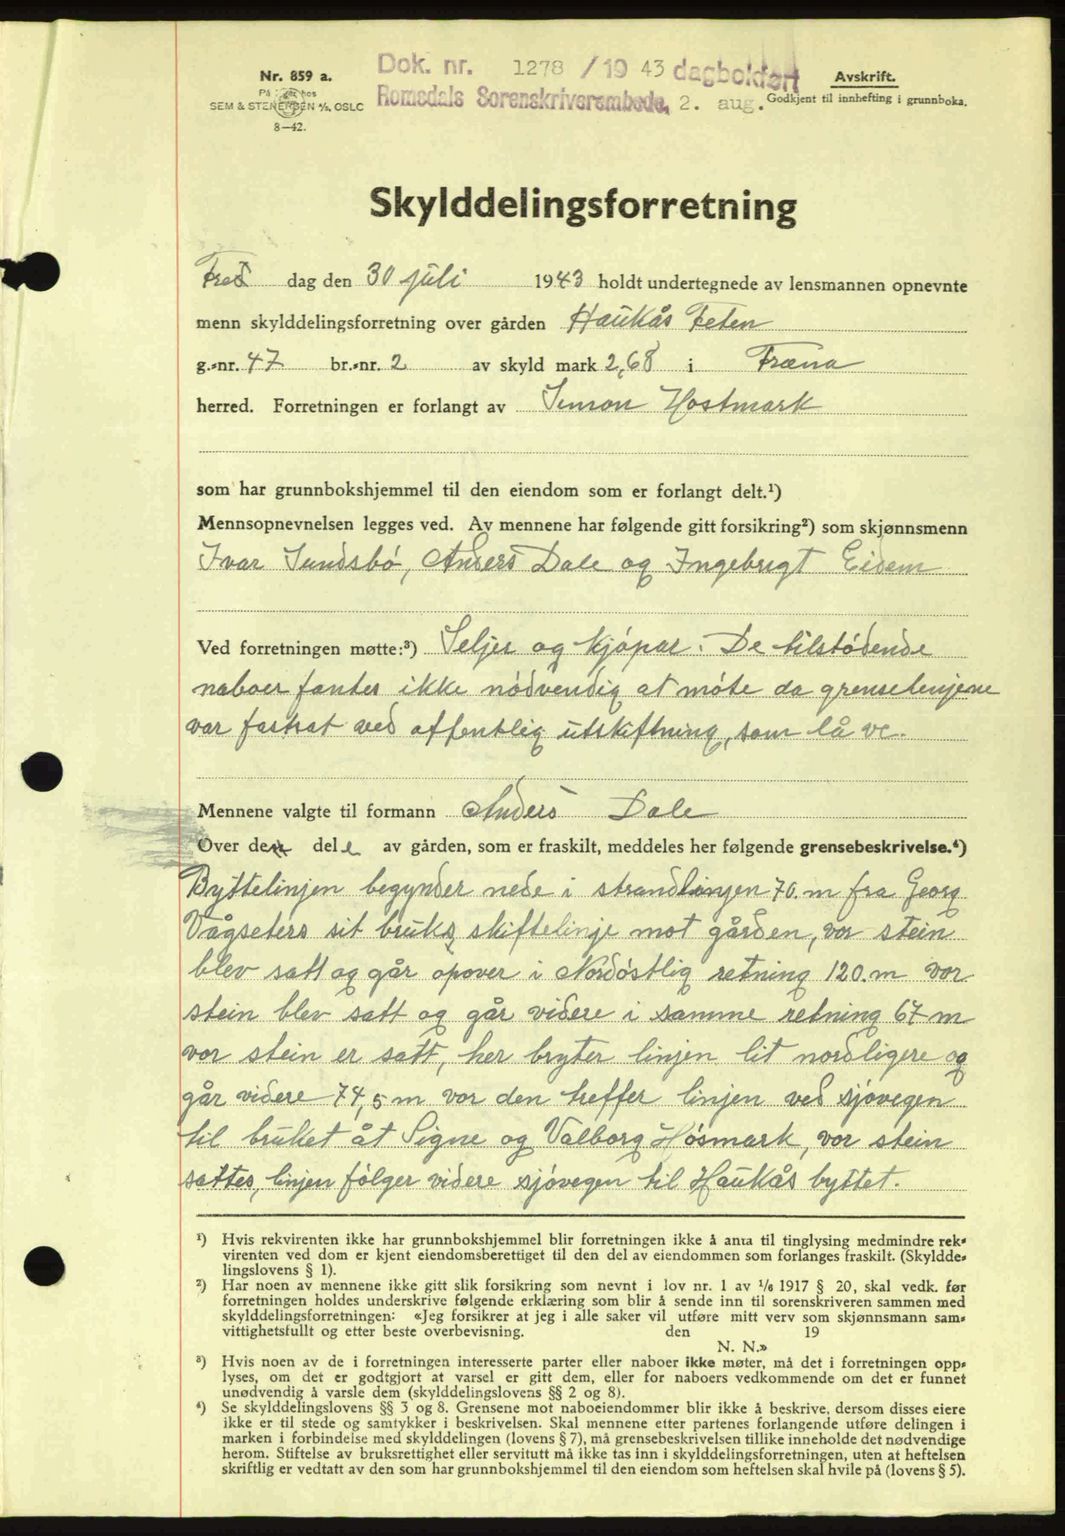 Dok. nr. 1278 /19 43 dagbokført
Romsdals Sorenskriverembede, 2. aug.
Nr. 859 a.
SEM & STENERSEN A/S, OSLO
8—42.
Avskrift.
Godkjent til innhefting i grunnboka.
Skylddelingsforretning
Fre dag den 30 juli 1943 holdt undertegnede av lensmannen opnevnte
menn skylddelingsforretning over gården Haukås Feten
g.-nr. 47 br.-nr. 2 av skyld mark 2,68 i Fræna
herred. Forretningen er forlangt av Simon Hostmark
som har grunnbokshjemmel til den eiendom som er forlangt delt.¹)
Mennsopnevnelsen legges ved. Av mennene har følgende gitt forsikring²) som skjønnsmenn
Ivar Sundsbö, Anders Dale og Ingebrigt Eidem
Ved forretningen møtte:³) Seljer og kjöpar. De tilstödende
naboer fantes ikke nödvendig at möte da grenselinjene
var fastsat ved offentlig utskiftning, som lå ve.
Mennene valgte til formann Anders Dale
Over de dele av gården, som er fraskilt, meddeles her følgende grensebeskrivelse.⁴)
Byttelinjen begynder nede i strandlinjen 70. m fra Georg
Vågseters sit bruks skiftelinje mot gården, vor stein
blev satt og går opover i Nordöstlig retning 120. m vor
stein blev satt og går videre i samme retning 67 m
vor stein er satt, her bryter linjen lit nordligere og
går videre 74,5 m vor den treffer linjen ved sjövegen
til bruket åt Signe og Valborg Hösmark, vor stein
sattes, linjen fölger videre sjövegen til Haukås byttet.
¹) Hvis rekvirenten ikke har grunnbokshjemmel blir forretningen ikke å anta til tinglysing medmindre rek-
virenten ved dom er kjent eiendomsberettiget til den del av eiendommen som forlanges fraskilt. (Skyldde-
lingslovens § 1).
²) Har noen av mennene ikke gitt slik forsikring som nevnt i lov nr. 1 av 1/6 1917 § 20, skal vedk. før
forretningen holdes underskrive følgende erklæring som blir å sende inn til sorenskriveren sammen med
skylddelingsforretningen: «Jeg forsikrer at jeg i alle saker vil utføre mitt verv som skjønnsmann sam-
vittighetsfullt og etter beste overbevisning. den 19
N. N.»
³) Hvis noen av de i forretningen interesserte parter eller naboer ikke møter, må det i forretningen opp-
lyses, om det er godtgjort at varsel er gitt dem, eller for naboers vedkommende om det er funnet
unødvendig å varsle dem (skylddelingslovens §§ 2 og 8).
⁴) Se skylddelingslovens §§ 3 og 8. Grensene mot naboeiendommer blir ikke å beskrive, dersom disses eiere
ikke er til stede og samtykker i beskrivelsen. Skal mennene etter partenes forlangende utføre delingen i
marken i forbindelse med skylddelingen (lovens § 7), må grensebeskrivelsen tillike inneholde det nødvendige
herom. Stiftelse av bruksrettighet eller servitutt må ikke tas inn i skylddelingsforretningen, uten at heftelsen
skriftlig er vedtatt av den som har grunnbokshjemmel til den eiendom som heftelsen skal hvile på (lovens § 5).